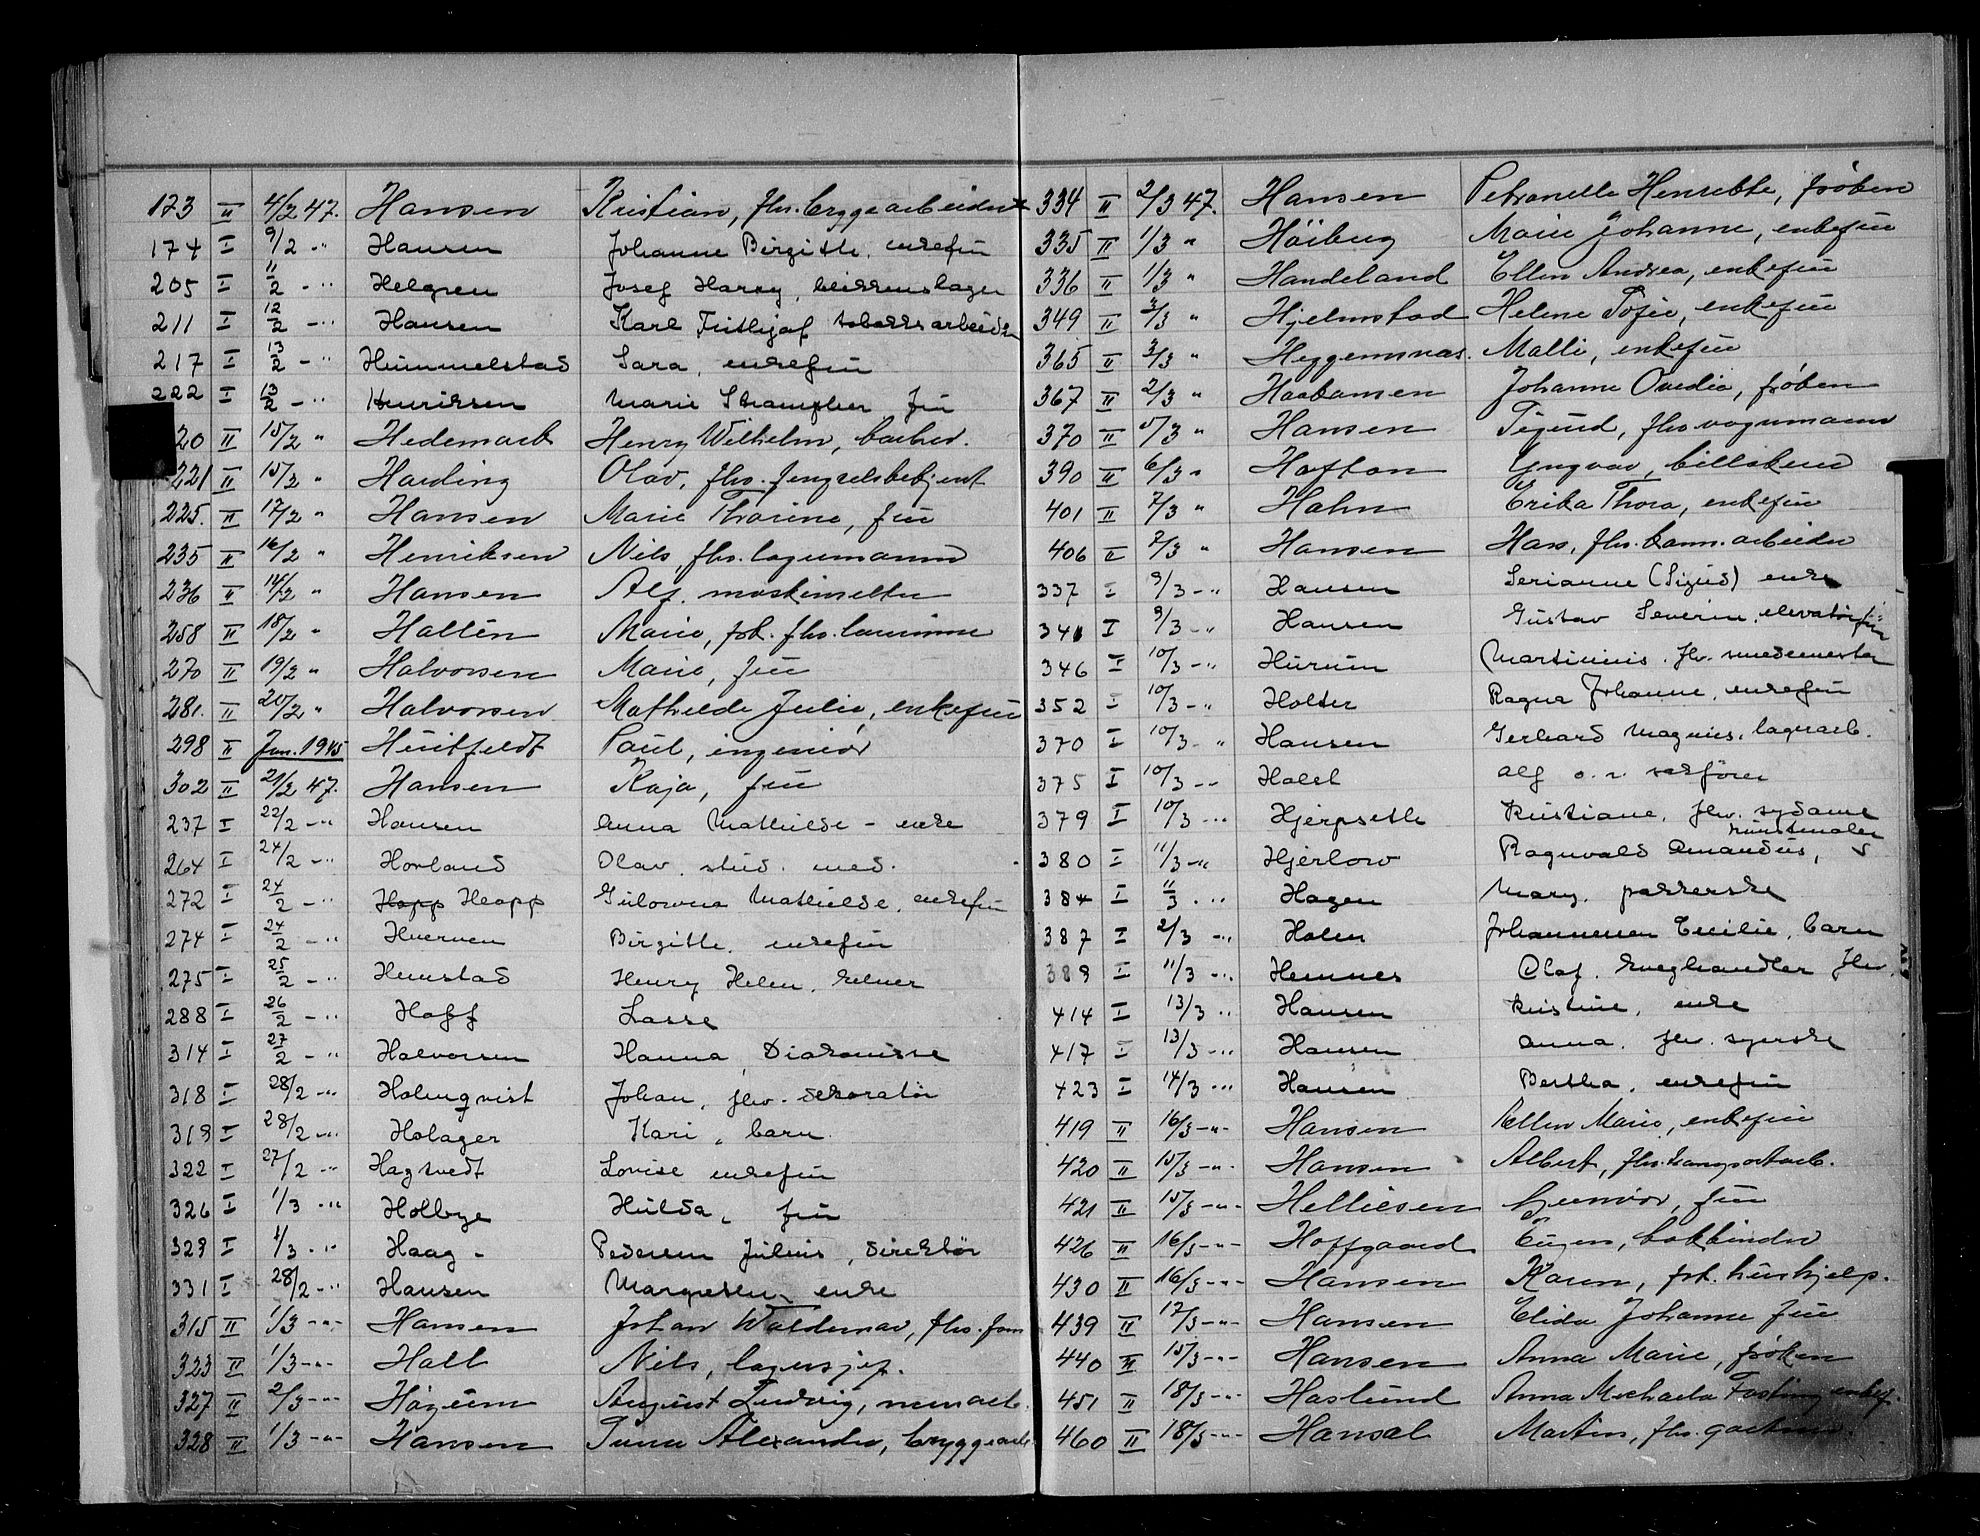 173 II 4/2 47. Hansen Kristian, fhv. bryggearbeider
174 I 9/2 -" Hansen Johanne Birgitte. enkefru
205 I 11/2 -" Helgren Josef Harry, blikkenslager
211 I 12/2 -" Hansen Karl Frithjof tobakksarbeider
217 I 13/2 -" Hummelstad Sara, enkefru
222 I 13/2 -" Henriksen Marie fru
20 II 15/2 " Hedemark Henry Wilhelm, barber.
221 II 15/2 " Harding Olav, fhv. fengselsbetjent
225. II 17/2 " Hansen Marie Thorine, fru
235 II 16/2 " Henriksen Nils, fhv. lagermann
236 II 14/2 " Hansen Alf. maskinsetter
258 II 18/2 " Hallén Marie, frk. fhv. lærerinne
270 II 19/2 " Halvorsen Marie, fru
281. II 20/2 " Halvorsen Mathilde Julie, enkefru
298 II Jan. 1945 Huitfeldt Paul, ingeniør
302 II 21/2 47. Hansen Kaja, fru
237 I 22/2 -" Hansen Anna Mathilde - enke
264 I 24/2 -" Hovland Olav. stud. med.
272 I 24/2 -" Happ Heapp Mathilde, enkefru
274 I 24/2 -" Hverven Birgitte. enkefru
275 I 25/2 -" Hemstad Henry Helen, kelner
288 I 26/2 -" Hoff Lasse
314 I 27/2 -" Halvorsen Hanna, Diakonisse
318 I 28/2 -" Holmqvist Johan, fhv. dekoratør
319 I 28/2 -" Holager Kari, barn
322 I 27/2 -" Hagtvedt Lovise enkefru
326 I 1/3 -" Holbye Hulda, fru
329 I 1/3 -" Haag - Pedersen Julius, direktør
331 I 28/2 -" Hansen Margrethe, enke
315 II 1/3 -"- Hansen Johan Waldemar, fhv. form
323 II 1/3 -"- Hall Nils, lagersjef.
327 II 2/3 -"- Høgum August Ludvig, murarb.
328 II 1/3 -"- Hansen Alexander, bryggearb
334 II 2/3 47. Hansen Petronelle Henrette, frøken
335 II 1/3 " Høiberg Marie Johanne, enkefru
336 II 1/3 " Handeland Ellen Andrea, enkefru
349 II 3/3 " Hjelmstad Helene Sofie, enkefru
365 II 3/3 " Heggemsnes. Malli, enkefru
367 II 2/3 " Haakonsen Johanne Ovedia, frøken
370 II 5/3 " Hansen Sigurd, fhv. vognmann
390 II 6/3 " Hafton Yngvar, billskjører
401 II 7/3 " Hahn Erika Thora, enkefru
406 II 7/3 " Hansen Hans, fhv. komm. arbeider
337 I 9/3 -" Hansen Serianne (Sigrid) enke
341 I 9/3 -" Hansen Gustav Severin, elevatorfører
346 I 10/3 -" Hurum Martinius. fhv. smedemester
352 I 10/3 -" Holter Ragna Johanne, enkefru
370 I 10/3 -" Hansen Gerhard Magnus, lagerarb.
375 I 10/3 -" Holst Alf o.r. sakfører
379 I 10/3 -" Hjerpseth Kristiane, fhv. sydame
380 I 11/3 -" Hjerlow Ragnvald Amandus, kunstmaler
384 I 11/3 -" Hagen Mary, pakkerske
387 I 2/3 -" Holen Johannesen Cecilie, barn
389 I 11/3 -" Hemnes Olaf. kveghandler fhv.
414 I 13/3 " Hansen Kristine, enke
417 I 13/3 -" Hansen Anna. fhv. syerske
423 I 14/3 -" Hansen Bertha, enkefru
419 II 16/3 -"- Hansen Ellen Marie, enkefru
420 II 15/3 -"- Hansen Albert, fhv. transportarb.
421 II 15/3 -"- Helliesen Gunvor, fru
426 II 16/3 -"- Hoffgaard Eugen, bokbinder
430 II 16/3 -"- Hansen Karen, frk. hushjelp.
439 II 17/3 -"- Hansen Elida Johanne fru
440 II 15/3 -"- Hansen Anna Marie, frøken
451 II 18/3 -"- Haslund Anna Michaela Fasting enkef.
460 II 18/3 -"- Hansal Martin, fhv. gartner.